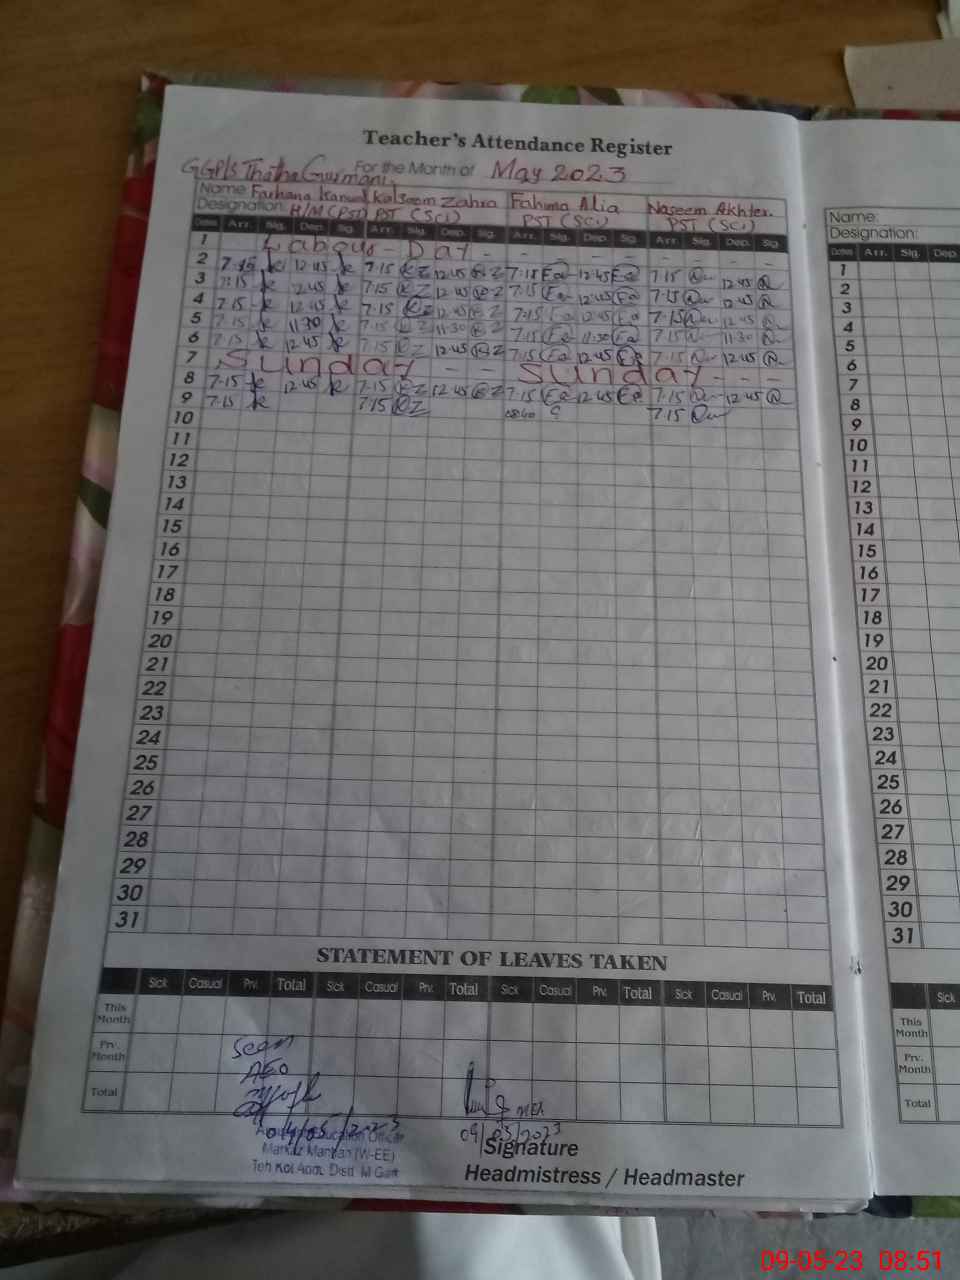 Teacher's Attendance Register
GGP/s Thatha Gurmani For the Month of May 2023
Name: Farhana Kanwal Kalsoom Zahra Fahima Alia Naseem Akhter
Designation: H/M (PST) PST (Sci) PST (Sci) PST (Sci)
Dates Arr. Sig. Dep. Sig. Arr. Sig. Dep. Sig. Arr. Sig. Dep. Sig. Arr. Sig. Dep. Sig.
1 Labour - Day - - - - - - -
2 7.15 12.45 7.15 KZ 12.45 KZ 7.15 Fa 12.45 Fa 7.15 12.45
3 7.15 12.45 7.15 KZ 12.45 KZ 7.15 Fa 12.45 Fa 7.15 12.45
4 7.15 12.45 7.15 KZ 12.45 KZ 7.15 Fa 12.45 Fa 7.15 12.45
5 7.15 11.30 7.15 KZ 11.30 KZ 7.15 Fa 11.30 Fa 7.15 11.30
6 7.15 12.45 7.15 KZ 12.45 KZ 7.15 Fa 12.45 Fa 7.15 12.45
7 Sunday - - Sunday - - -
8 7.15 12.45 7.15 KZ 12.45 KZ 7.15 Fa 12.45 Fa 7.15 12.45
9 7.15 7.15 KZ 08:40 7.15
10
11
12
13
14
15
16
17
18
19
20
21
22
23
24
25
26
27
28
29
30
31
STATEMENT OF LEAVES TAKEN
Sick Casual Prv. Total Sick Casual Prv. Total Sick Casual Prv. Total Sick Casual Prv. Total
This Month
Prv. Month
Total
Seen
AEO
09/05/2023
Education Officer
Markaz Manhan (W-EE)
Teh Kot Addu Distt M Garh
MEA
09/05/2023
Signature
Headmistress / Headmaster
Name:
Designation:
Dates Arr. Sig. Dep.
1
2
3
4
5
6
7
8
9
10
11
12
13
14
15
16
17
18
19
20
21
22
23
24
25
26
27
28
29
30
31
Sick
This Month
Prv. Month
Total
09-05-23 08:51